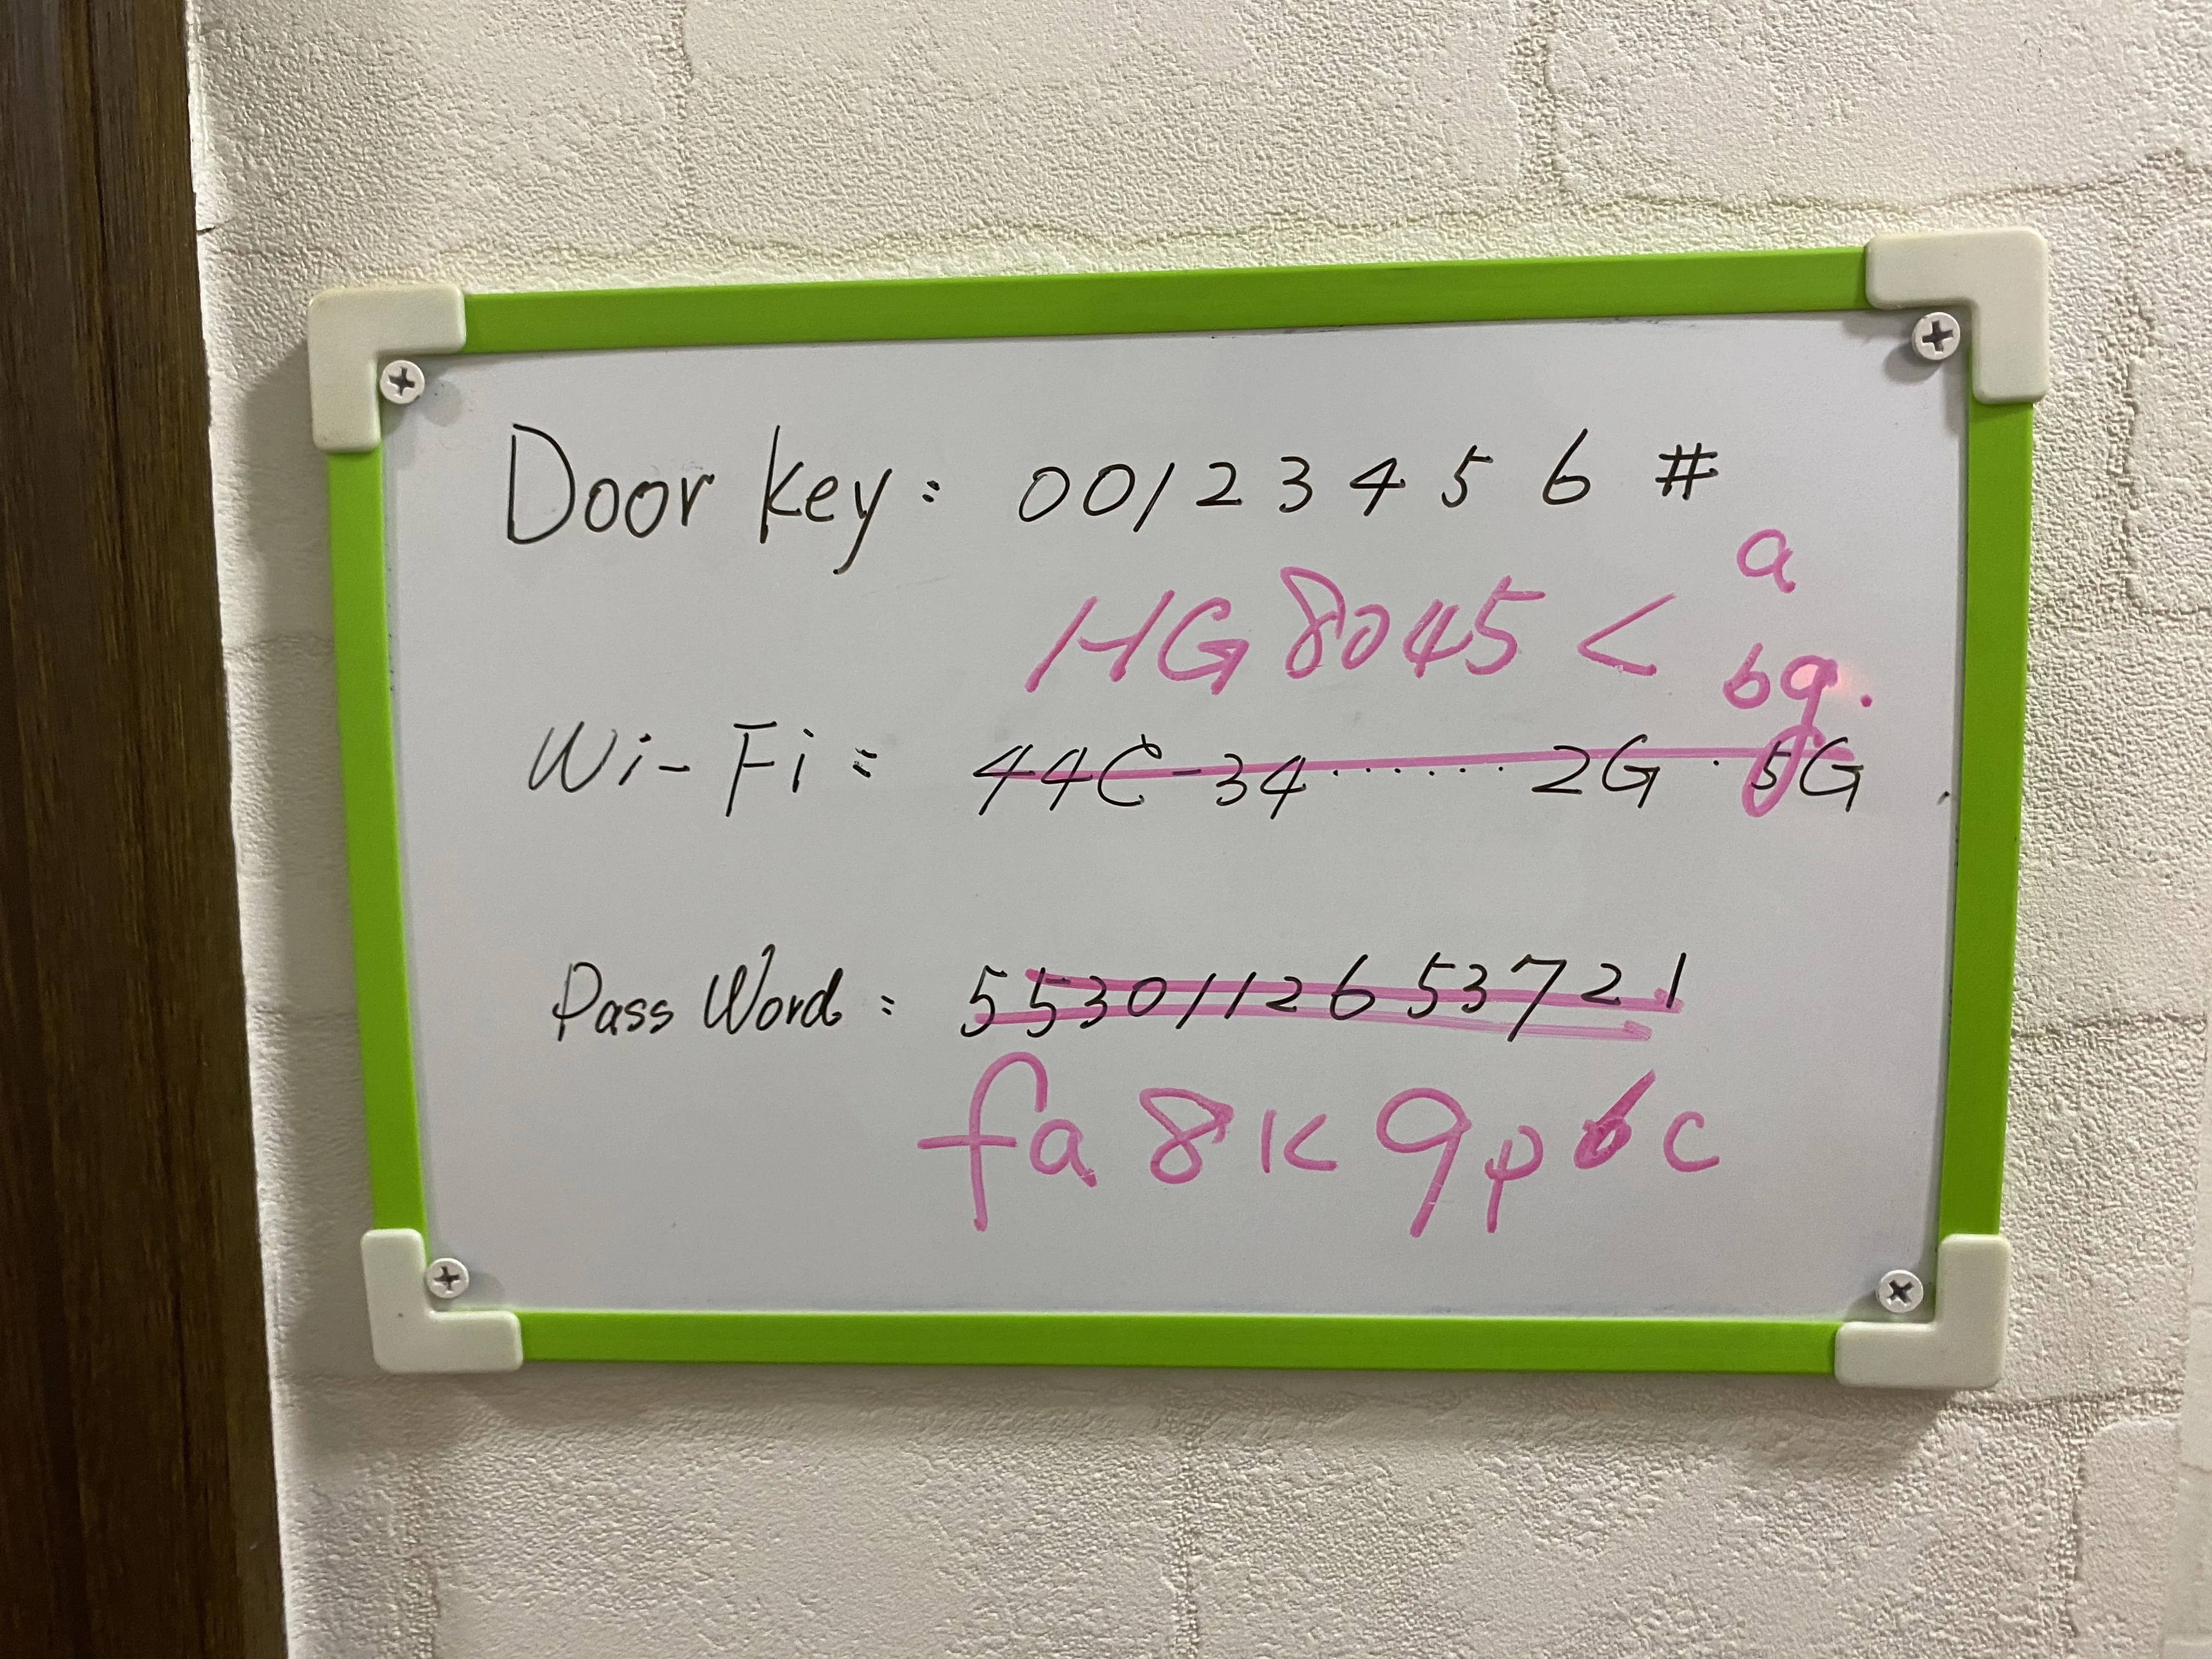 Door key: 00123456#
HG8045< a
bg.
Wi-Fi: 44C-34........2G · 5G
PassWord: 5530112653721
fa8k9p6c